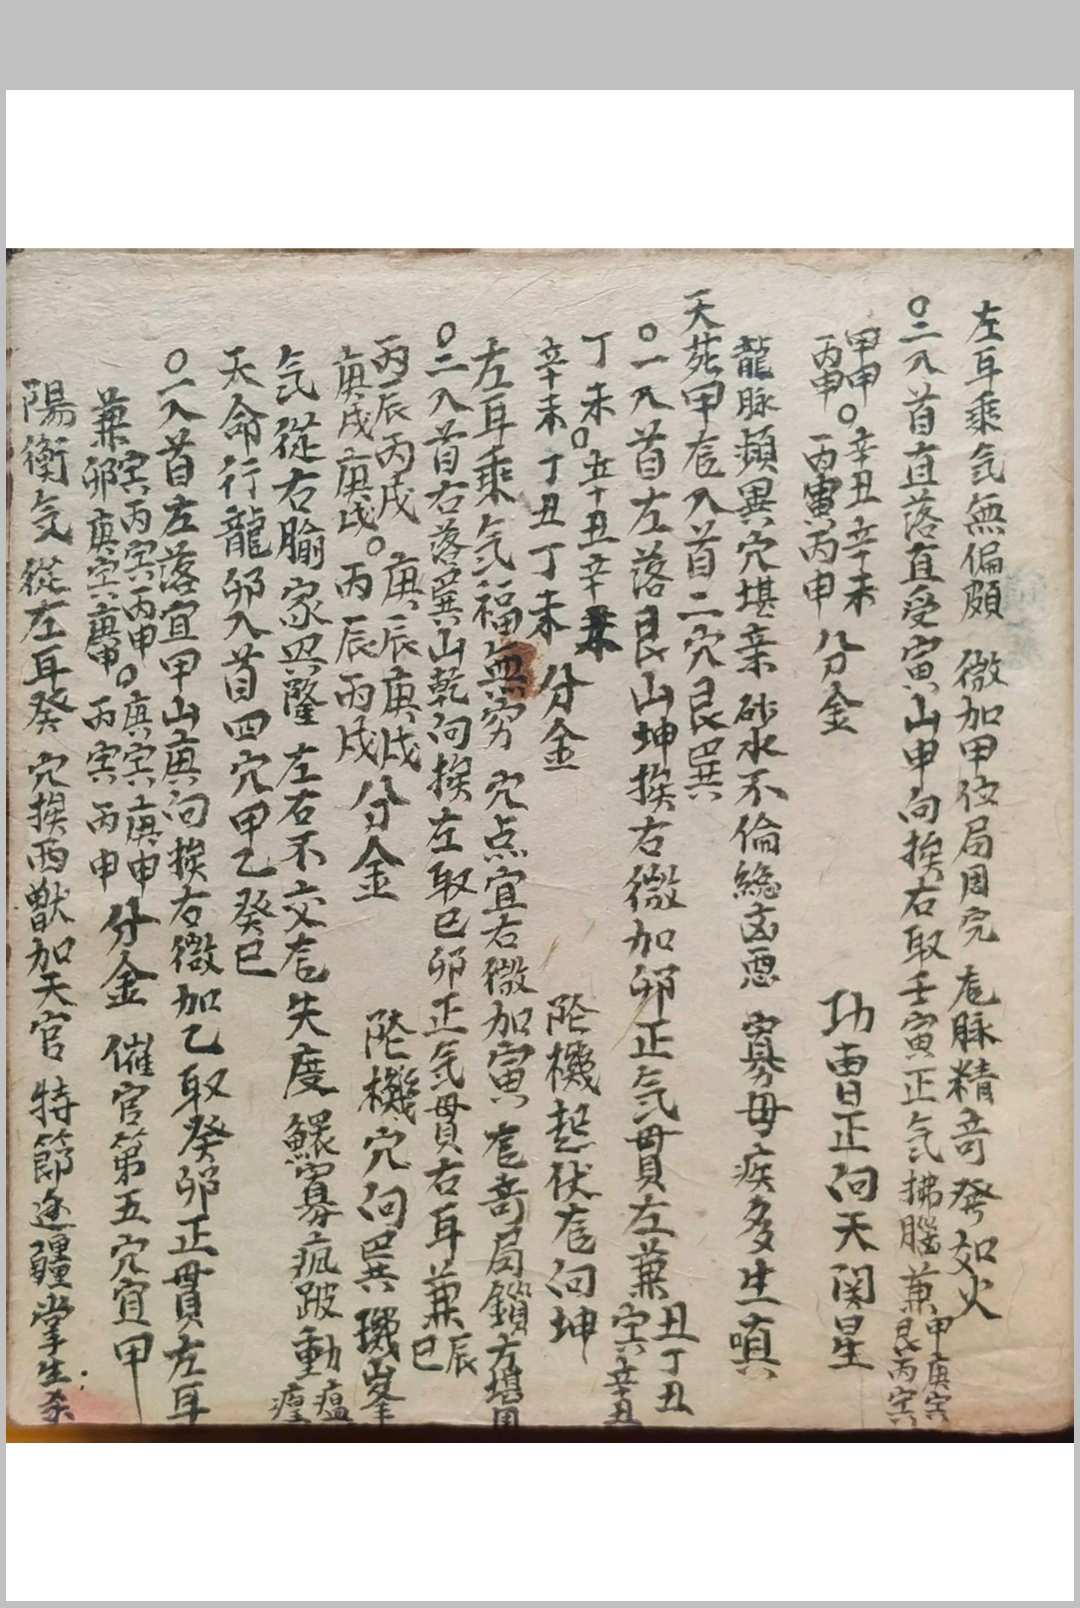 左耳乘気無偏頗　微加甲位局周完　龙脉精奇發如火
○二入首直落直受寅山申向挨右取壬寅正気拂腦兼甲庚寅艮丙寅
甲申丙申○辛丑辛未丙寅丙申分金
功曹正向天関星
龍脉頻異穴堪亲　砂水不倫総凶惡　寡母疾多生嗔
天苑甲龙入首二穴艮巽
○一入首左落艮山坤挨右微加卯正気貫左兼丑丁丑寅辛丑
丁未○辛丑辛未
辛未丁丑丁未分金
陰機起伏龙向坤
左耳乘気福無穷　穴点宜右微加寅　龙奇局鎖方堪用
○二入首右落巽山乾向挨左取巳卯正気貫右耳兼辰巳
丙辰丙戌　庚辰庚戌
庚戌庚戌○丙辰丙戌分金
陰機穴向巽璣峯
気從右腧家興隆　左右不交龙失度　鰥寡瘋跛動瘟㾮
天命行龍卯入首四穴甲乙癸巳
○一入首左落宜甲山庚向挨右微加乙取癸卯正貫左耳
兼寅卯丙寅庚寅丙申庚申○庚寅庚申
丙寅丙申分金　催官第五穴宜甲
陽衡気從左耳癸　穴挨西獸加天官　特節边疆掌生杀